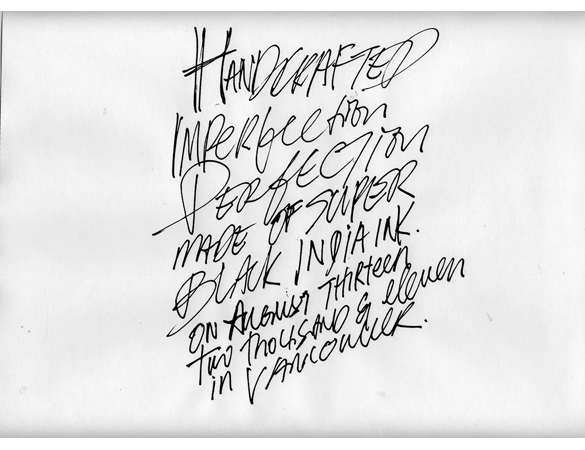 HANDCRAFTED
IMPERfection
PERFECTION
MADE OF SUPER
BLACK INDIA INK.
ON AUGUST THIRTEEN
TWO THOUSAND & eleven
in VANCOUVER.